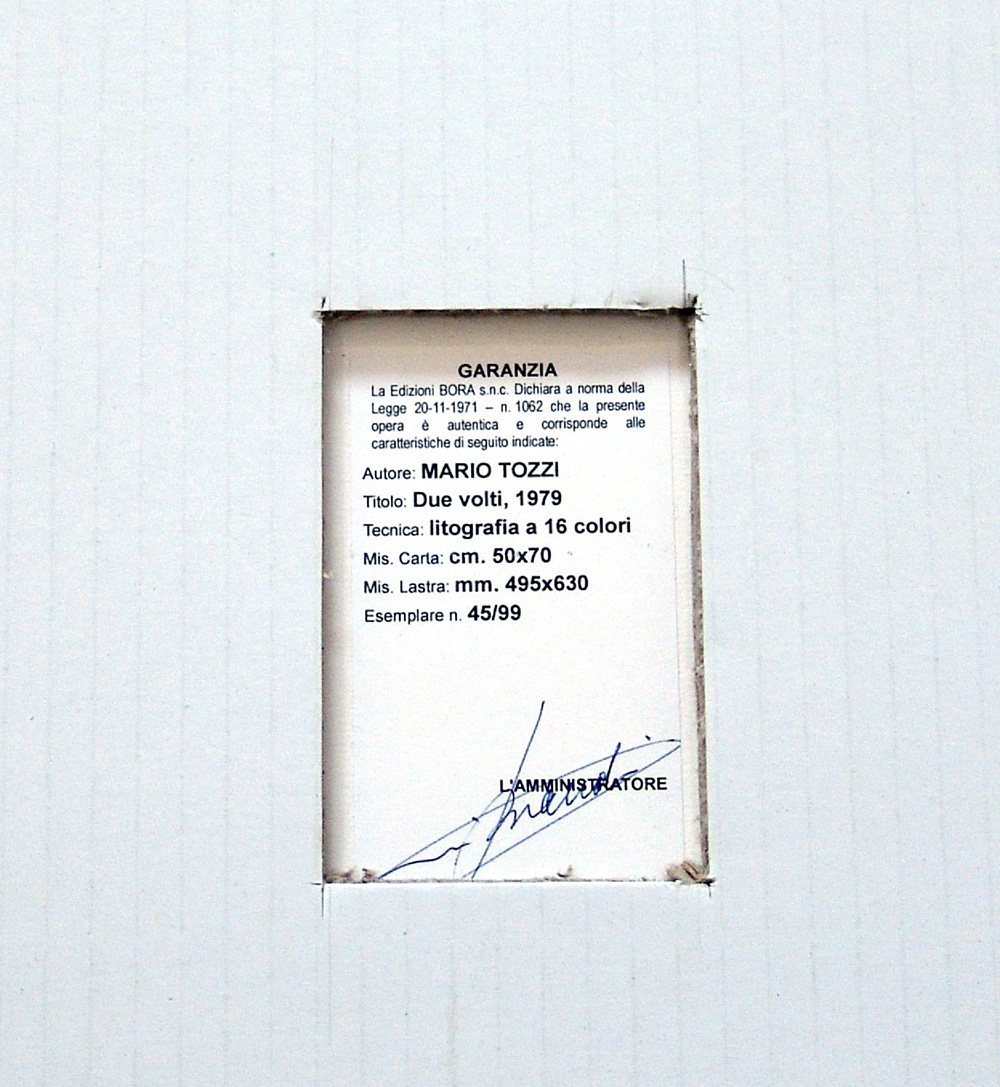 GARANZIA
La Edizioni BORA s.n.c. Dichiara a norma della
Legge 20-11-1971 – n. 1062 che la presente
opera è autentica e corrisponde alle
caratteristiche di seguito indicate:
Autore: MARIO TOZZI
Titolo: Due volti, 1979
Tecnica: litografia a 16 colori
Mis. Carta: cm. 50x70
Mis. Lastra: mm. 495x630
Esemplare n. 45/99
L'AMMINISTRATORE